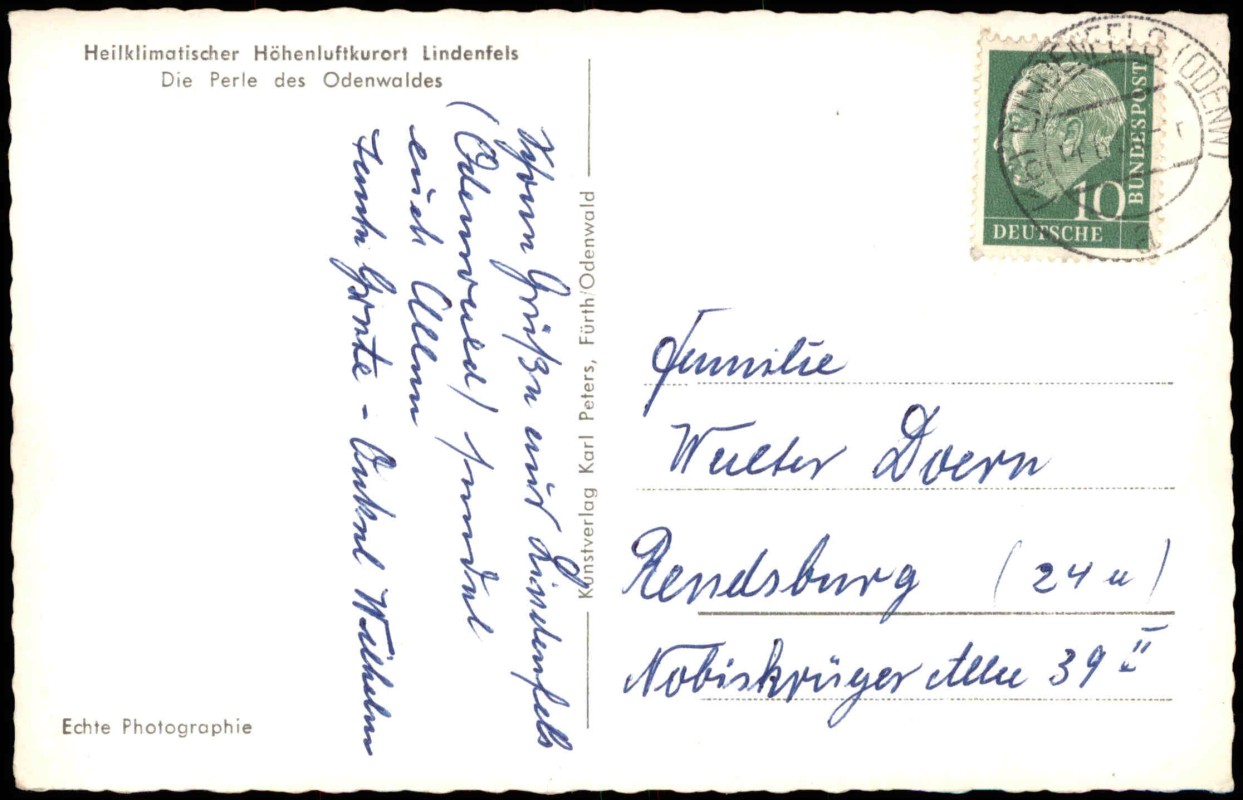 Heilklimatischer Höhenluftkurort Lindenfels
Die Perle des Odenwaldes
Grüße aus Lindenfels
(Odenwald) sendet
euch Allen
Tante Grete - Onkel Wilhelm
Echte Photographie
Kunstverlag Karl Peters, Fürth/Odenwald
LINDENFELS (ODENW)
a
10
BUNDESPOST
DEUTSCHE
Familie
Walter Doern
Rendsburg (24 a)
Nobiskrüger Allee 39 II